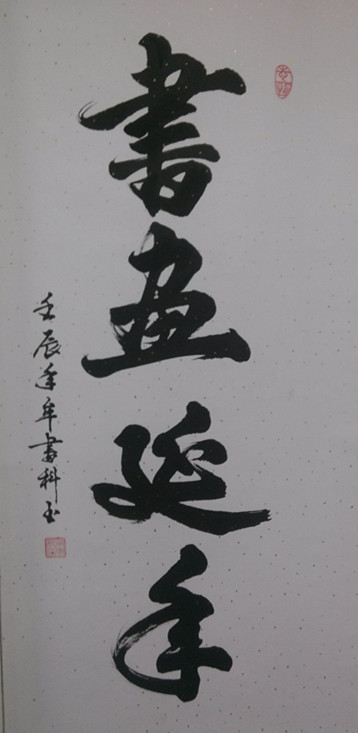 書畫延年
壬辰年牟書科玉